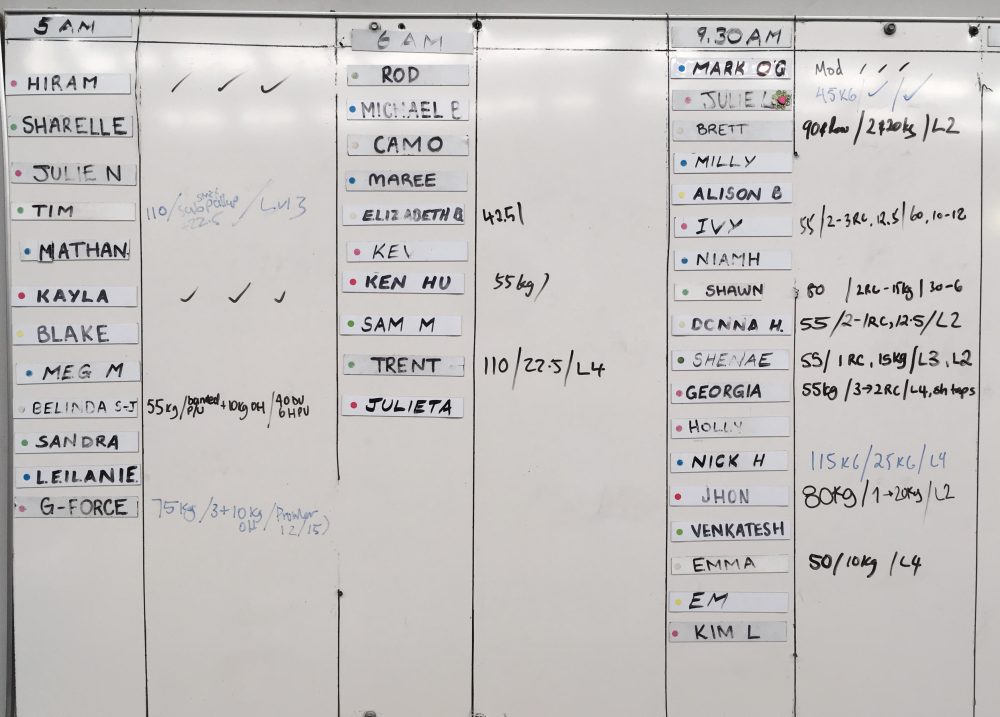 5 AM
HIRAM ✓ ✓ ✓
SHARELLE
JULIE N
TIM 110/ 22.5 / Lvl 3
NATHAN
KAYLA ✓ ✓ ✓
BLAKE
MEG M
BELINDA S-J 55kg/banded P/U+10kg OH/40 DU 6 HPU
SANDRA
LEILANIE
G-FORCE 75kg/3+10kg OH/Prowler 12/15)
6 AM
ROD
MICHAEL B
CAMO
MAREE
ELIZABETH B 42.5/
KEV
KEN HU 55kg/
SAM M
TRENT 110/22.5/L4
JULIETA
9.30AM
MARK O'G Mod ✓ ✓ ✓
JULIE L 45KG ✓/✓
BRETT /L2
MILLY
ALISON B
IVY 55/2-3RC, 12.5/60, 10-12
NIAMH
SHAWN 80 /2RC-15kg/30-6
DONNA H. 55/2-1RC, 12.5/L2
SHENAE 55/1RC, 15kg/L3, L2
GEORGIA 55kg/3→2RC/L4, sh taps
HOLLY
NICK H 115KG/25KG/L4
JHON 80kg/1→20kg/L2
VENKATESH
EMMA 50/10kg/L4
EM
KIM L